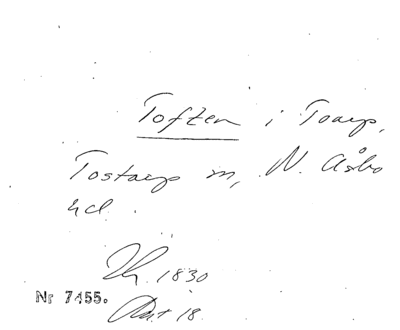 Toftem i Toarp,
Tostarp m, N. Åsbo
hd.
1830
Nr 7455. Akt 18.